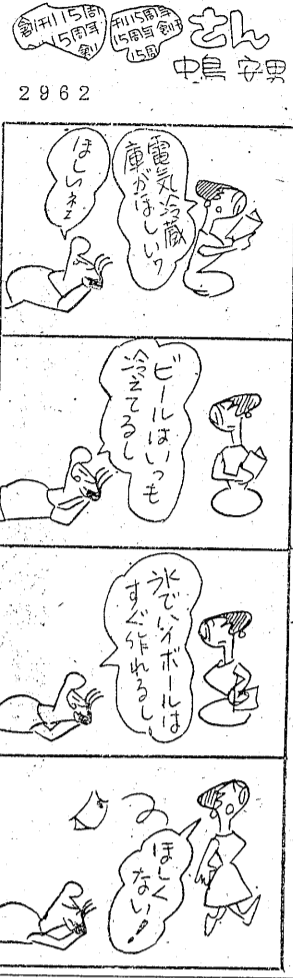 創刊15周
15周年
創
刊15周年
15周年創刊
15周
さん
中島 安男
2962
電気冷蔵
庫がほしい?
ほしいネエ
ビールはいつも
冷えてるし
氷でハイボールは
すぐ作れるし、
ほしく
ない!